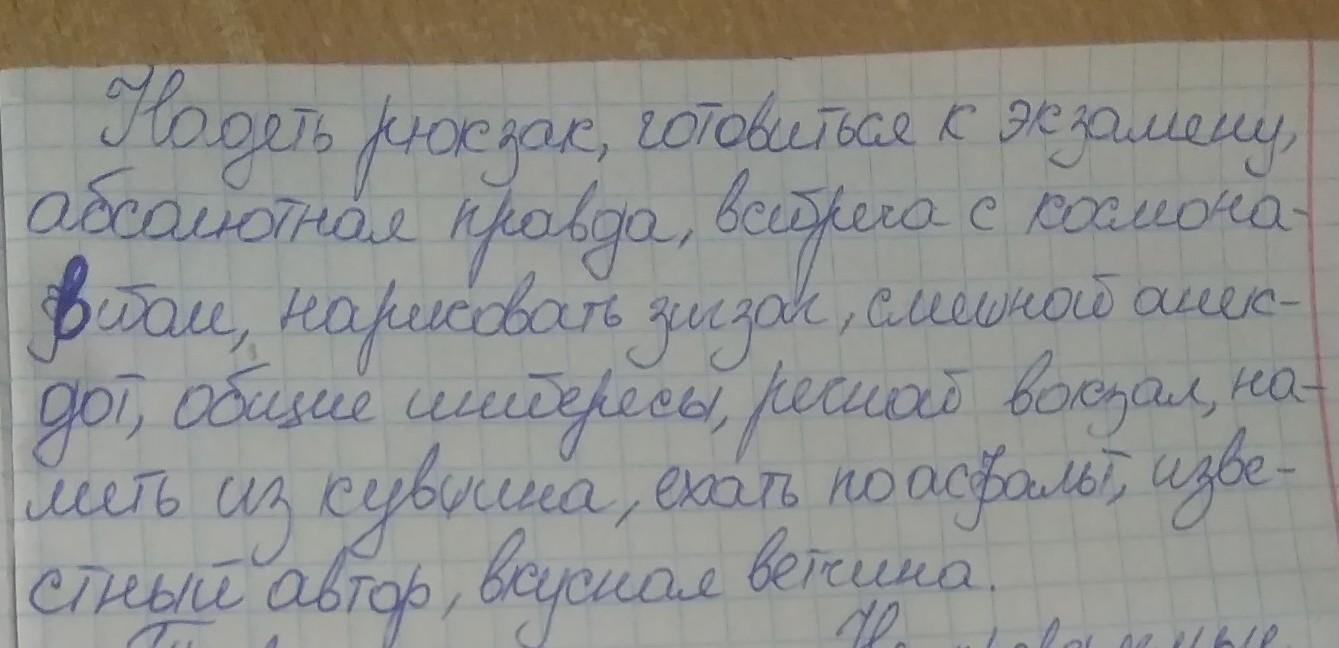 Надеть рюкзак, готовиться к экзамену,
абсолютная правда, встреча с космона-
втом, нарисовать зигзаг, смешной анек-
дот, общие интересы, речной вокзал, на-
лить из кувшина, ехать по асфальт, изве-
стный автор, вкусная ветчина.